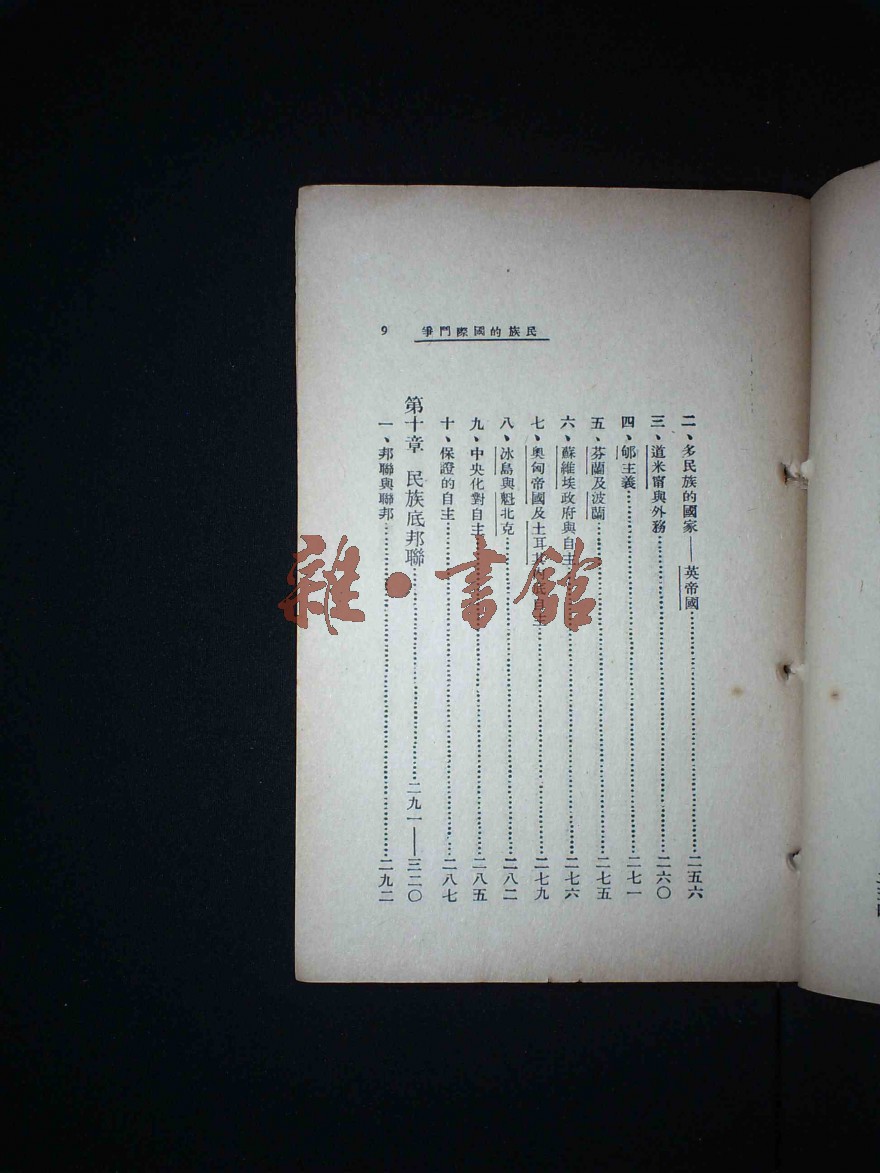 民族的國際鬥爭
9
二、多民族的國家——英帝國…………二五六
三、道米甯與外務…………二六〇
四、郇主義…………二七一
五、芬蘭及波蘭…………二七五
六、蘇維埃政府與自主…………二七六
七、奧匈帝國及土耳其內底自主…………二七九
八、冰島與魁北克…………二八二
九、中央化對自主…………二八五
十、保證的自主…………二八七
第十章 民族底邦聯…………二九一——三二〇
一、邦聯與聯邦…………二九二
雜·書館